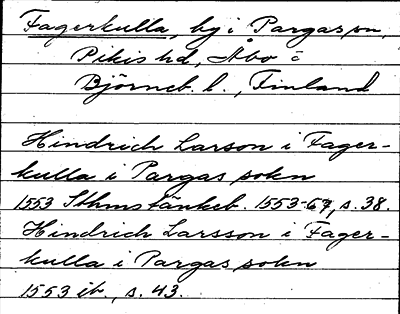 Fagerkulla, by i Pargas sn,
Pikis hd, Åbo o
Björneb. l., Finland
Hindrich Larson i Fager-
kulla i Pargas sokn
1553 Sthms tänkeb. 1553-67, s. 38.
Hindrich Larsson i Fager-
kulla i Pargas sokn
1553 ib., s. 43.